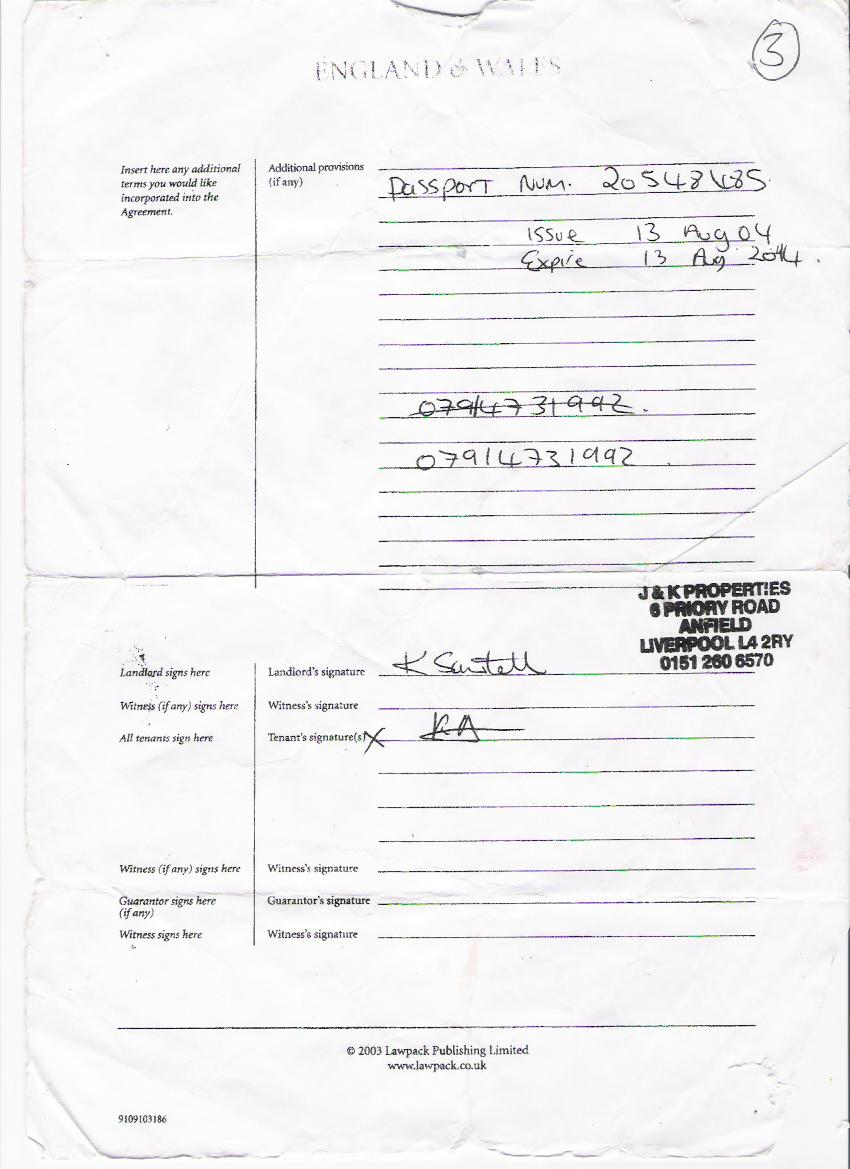 3
ENGLAND & WALES
Insert here any additional
terms you would like
incorporated into the
Agreement.
Additional provisions
(if any)
Passport Num.
Issue 13 Aug 04
Expire 13 Aug 2014.
07914731992.
07914731992.
J & K PROPERTIES
6 PRIORY ROAD
ANFIELD
LIVERPOOL L4 2RY
0151 260 6570
Landlord signs here
Landlord's signature
K
Witness (if any) signs here
Witness's signature
All tenants sign here
Tenant's signature(s) X
KA
Witness (if any) signs here
Witness's signature
Guarantor signs here
(if any)
Guarantor's signature
Witness signs here
Witness's signature
© 2003 Lawpack Publishing Limited
www.lawpack.co.uk
9109103186